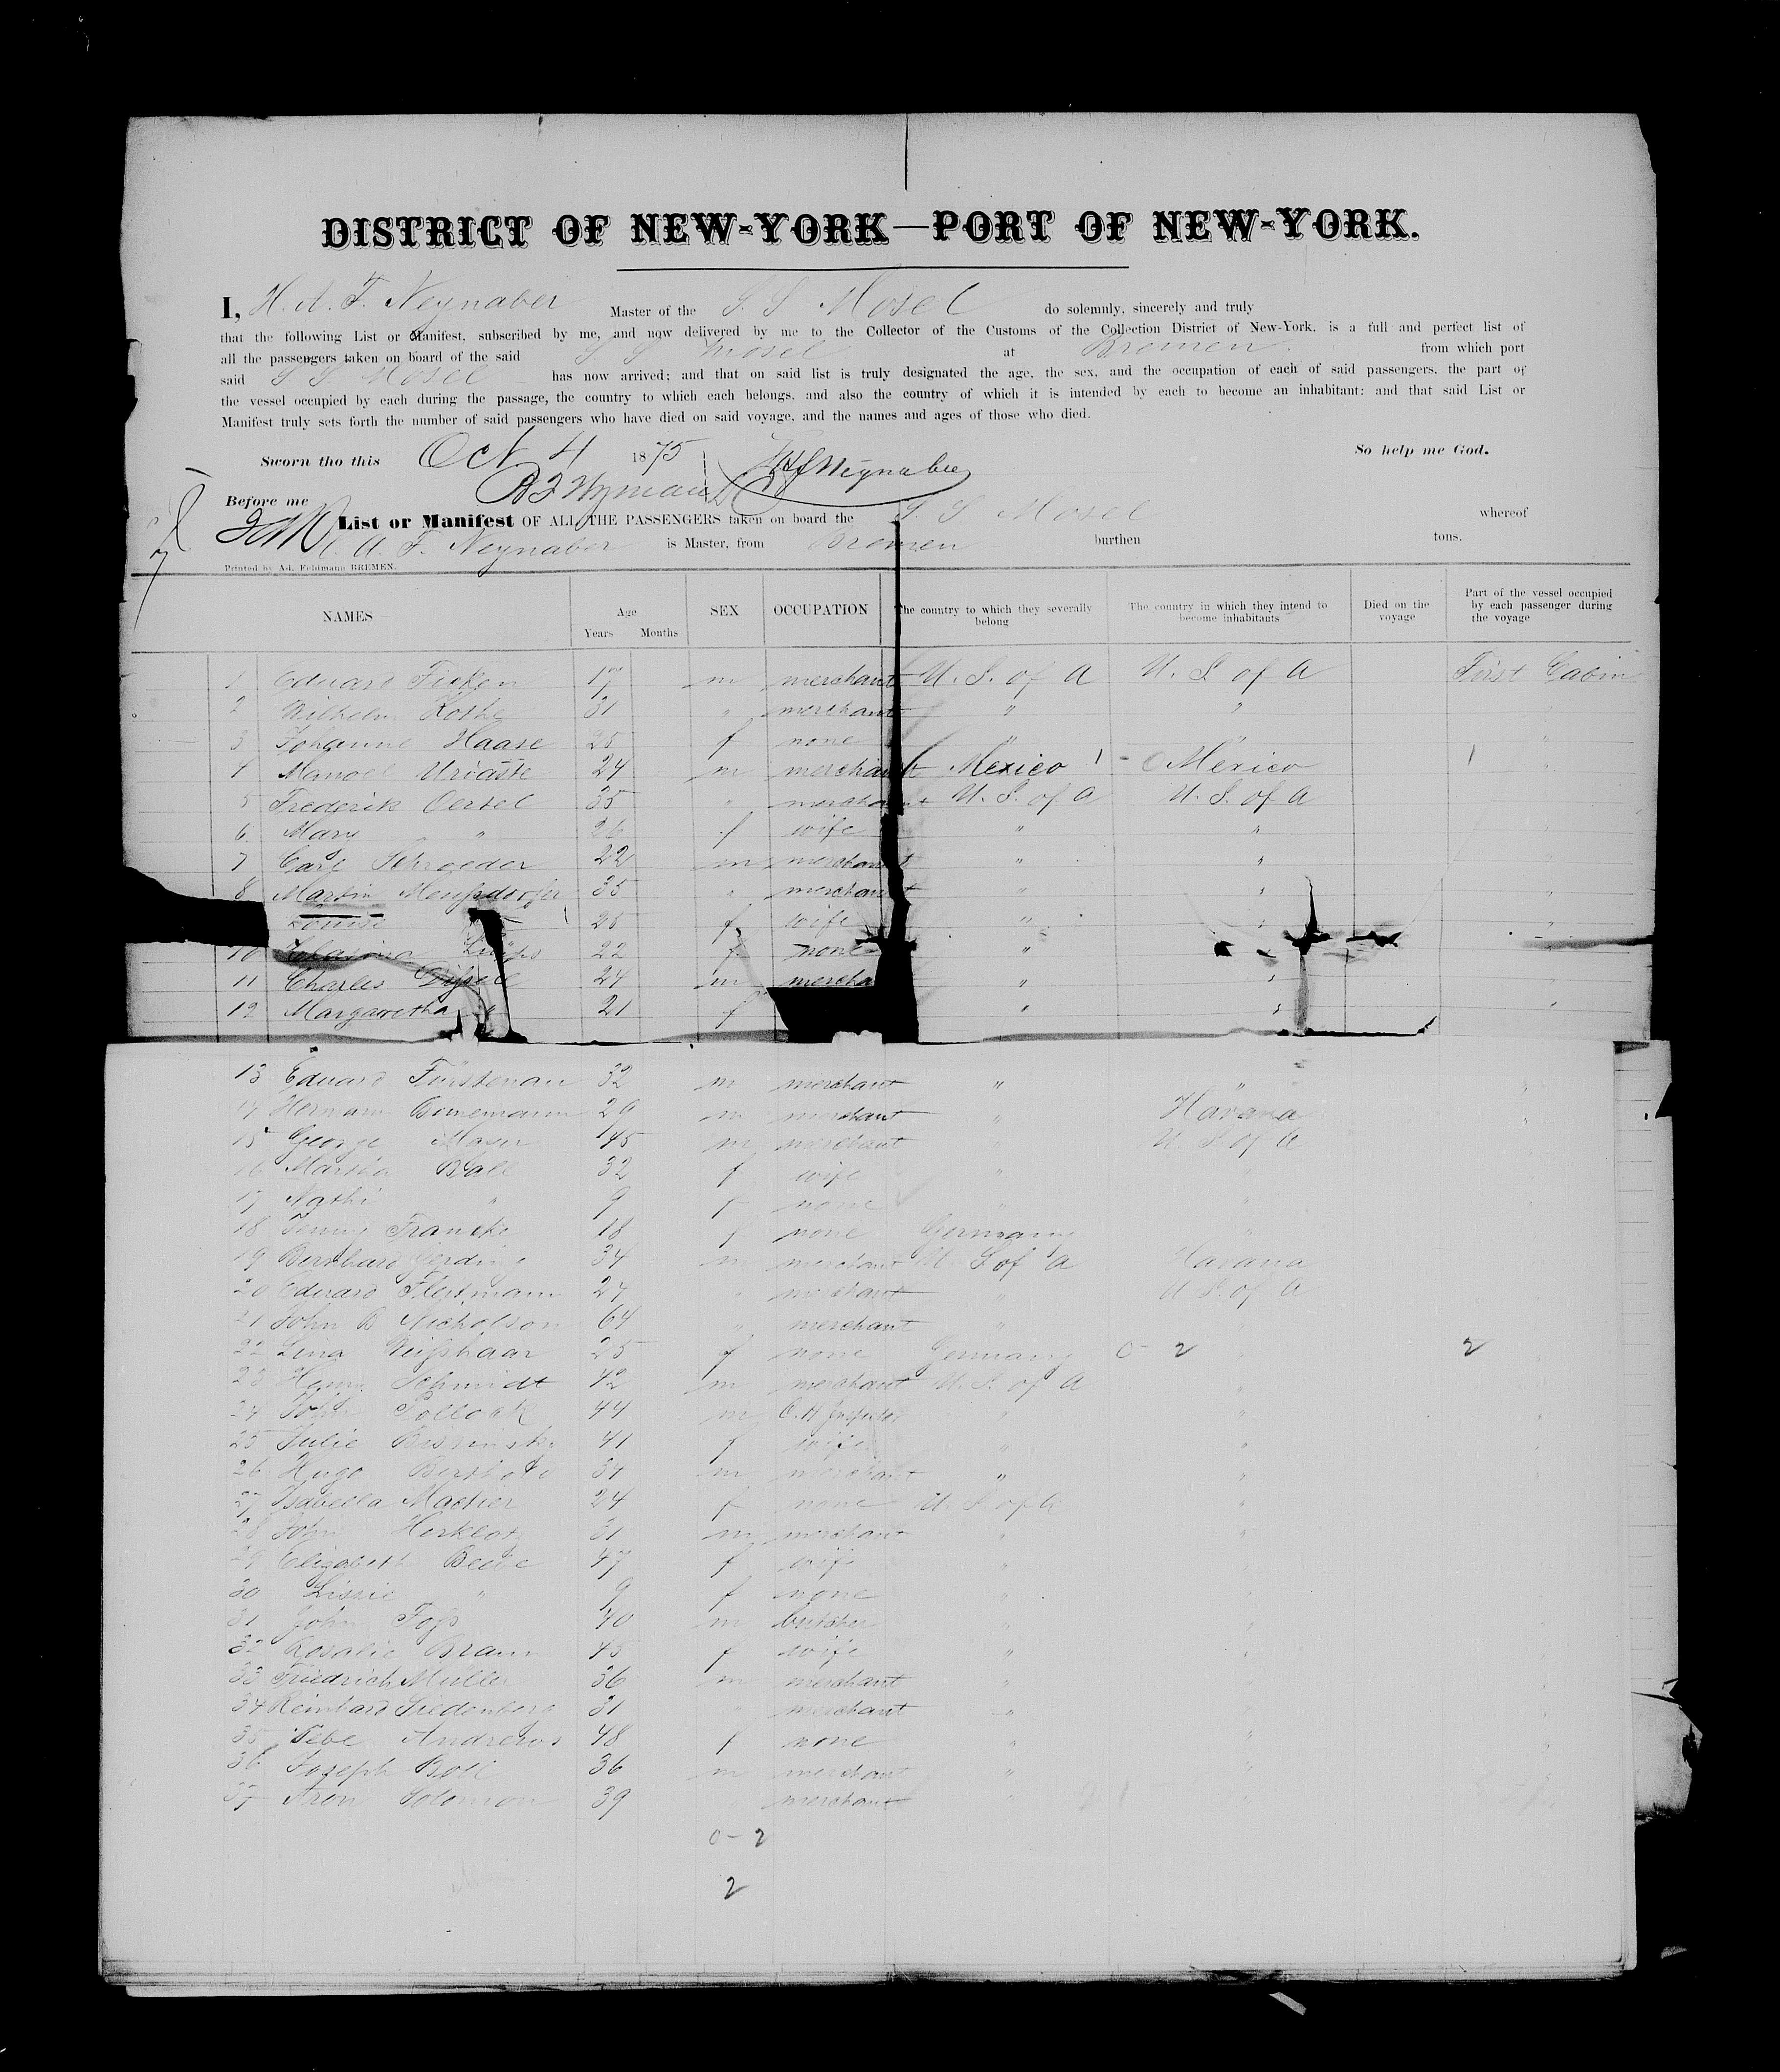 DISTRICT OF NEW-YORK—PORT OF NEW-YORK.
I, H. A. F. Neynaber Master of the S. S Mosel do solemnly, sincerely and truly
that the following List or Manifest, subscribed by me, and now delivered by me to the Collector of the Customs of the Collection District of New-York, is a full and perfect list of
all the passengers taken on board of the said S S Mosel at Bremen. from which port
said S S. Mosel has now arrived; and that on said list is truly designated the age, the sex, and the occupation of each of said passengers, the part of
the vessel occupied by each during the passage, the country to which each belongs, and also the country of which it is intended by each to become an inhabitant; and that said List or
Manifest truly sets forth the number of said passengers who have died on said voyage, and the names and ages of those who died.
Sworn tho this Oct 4 1875 HAFNeynaber So help me God.
Before me B F Wyman
List or Manifest OF ALL THE PASSENGERS taken on board the S. S Mosel whereof
H. A. F. Neynaber is Master, from Bremen burthen tons.
Printed by Ad. Feldmann BREMEN.
NAMES Age Years Months SEX OCCUPATION The country to which they severally belong The country in which they intend to become inhabitants Died on the voyage Part of the vessel occupied by each passenger during the voyage
1 Eduard Ficken 17 m merchant U. S. of A U. S of A First Cabin
2 Wilhelm Kothe 31 " merchant " " "
3 Johanne Haase 25 f none " " "
4 Manoel Uriaste 24 m merchant Mexico 1 - 0 Mexico 1 "
5 Frederik Oertel 35 " merchant U. S. of A U. S. of A
6 Mary " 26 f wife " "
7 Carl Schroeder 22 m merchant " "
8 Martin 35 " merchant " " "
Louise 25 f wife " " "
10 22 f none " "
11 Charles 24 m mercha " "
12 Margaretha 21 f " " "
13 Eduard Fürstenau 32 m merchant " " "
14 Hermann 29 m merchant " Havana "
15 George 45 m merchant U S. of A
16 Martha Ball 32 f wife " "
17 " 9 f none
18 Jenny Francke 18 f none Germany "
19 Bernhard 34 m merchant U. S of A Havana
20 Eduard 27 " merchant " U S. of A
21 John B Nicholson 64 " merchant "
22 Lina Weißhaar 25 f none Germany 0 - 2 " 2
23 Henry Schmidt 42 m merchant U. S. of A "
24 John Pollock 44 m C. H Inspector " "
25 Julie 41 f wife " "
26 Hugo 31 m merchant " "
27 Isabella 24 f none U. S of A "
28 John Herklotz 31 m merchant " "
29 Elizabeth Beebe 47 f wife "
30 Lizzie " 9 f none "
31 John Foß 40 m butcher "
32 Rosalie Braun 45 f wife " "
33 Friedrich Müller 36 m merchant "
34 Reinhard Siedenburg 31 " merchant "
35 Andrews 48 f none " "
36 Joseph Boll 36 m merchant " "
37 Aron Solomon 39 merchant "
0 - 2
2